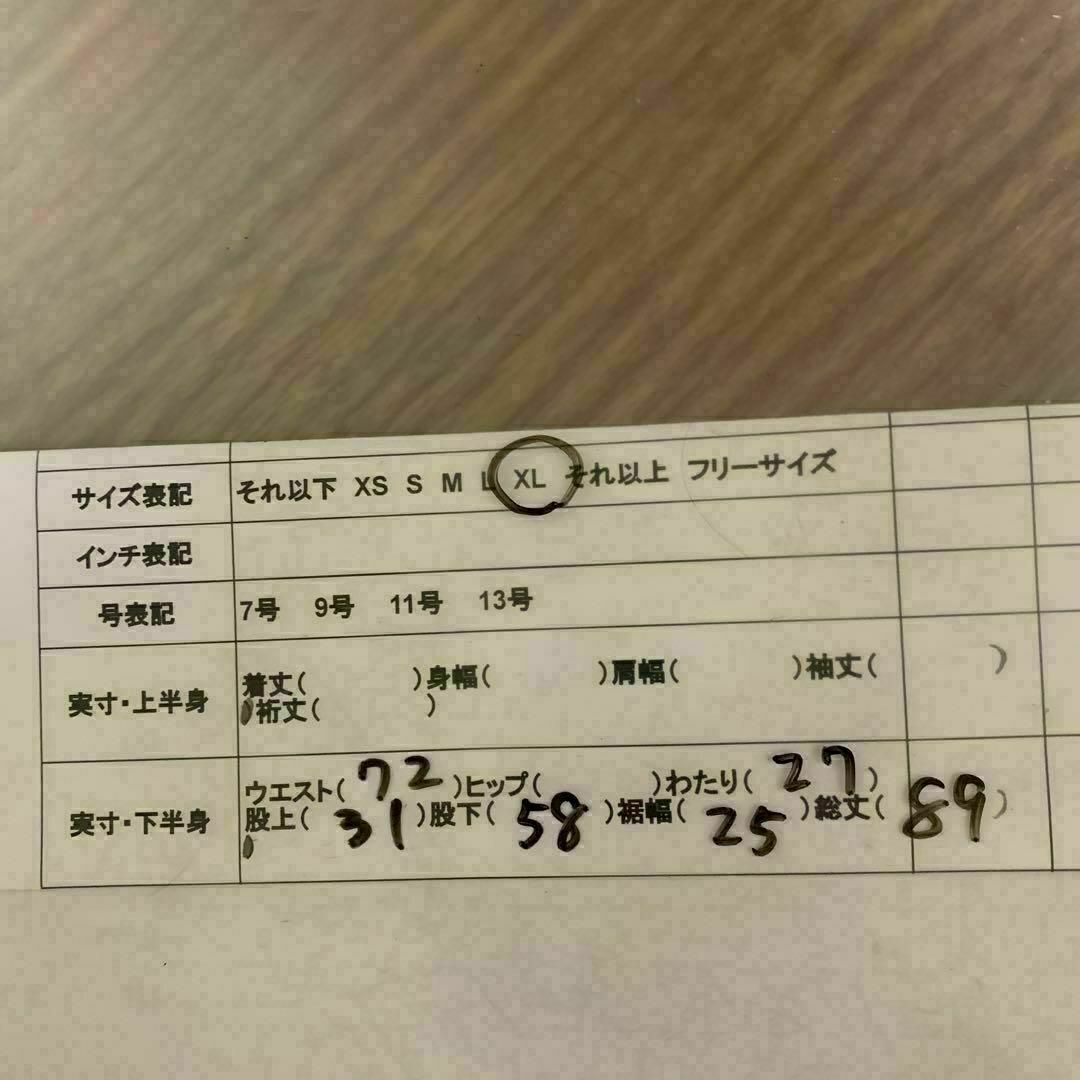 サイズ表記 それ以下 XS S M L XL それ以上 フリーサイズ
インチ表記
号表記 7号 9号 11号 13号
実寸・上半身 着丈( )身幅( )肩幅( )袖丈( )
)裄丈( )
実寸・下半身 ウエスト(72)ヒップ( )わたり(27)
股上(31)股下(58)裾幅(25)総丈(89)
)